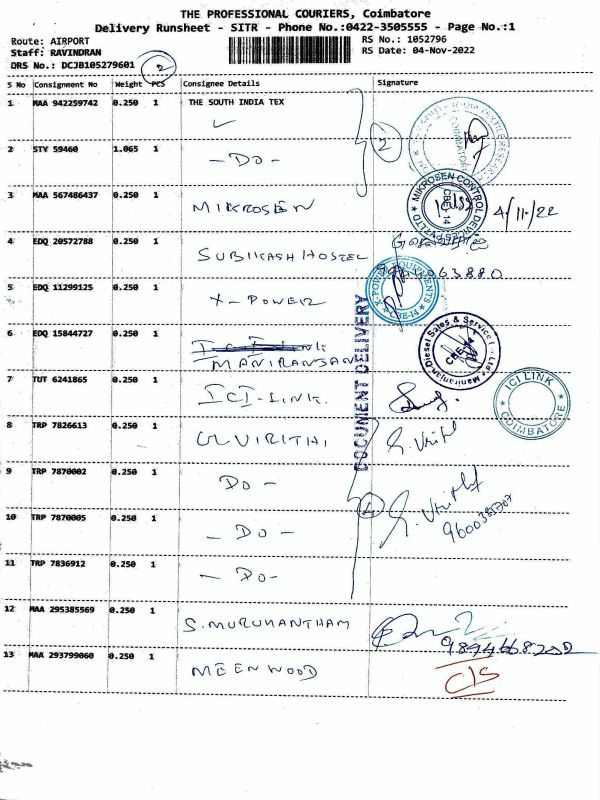 THE PROFESSIONAL COURIERS, Coimbatore
Delivery Runsheet - SITR - Phone No.:0422-3505555 - Page No.:1
Route: AIRPORT
RS No.: 1052796
Staff: RAVINDRAN
RS Date: 04-Nov-2022
DRS No.: DCJB105279601
2
S No Consignment No Weight PCS Consignee Details Signature
1 MAA 942259742 0.250 1 THE SOUTH INDIA TEX
2 STY 59460 1.065 1 - DO - 2
COIMBATORE
3 MAA 567486437 0.250 1 MIKROSEN
MIKROSEN CONTROL DEVICES PVT LTD
CBE-14
4/11/22
4 EDQ 20572788 0.250 1 SUBIKASH HOSTEL
5 EDQ 11299125 0.250 1 X-POWER
X-POWER EQUIPMENTS
CBE-14
DOCUMENT DELIVERY
6 EDQ 15844727 0.250 1
MANIRANJAN
Maniranjan Diesel Sales & Service
CBE-14
7 TUT 6241865 0.250 1 ICI-LINK.
ICI LINK
COIMBATORE
8 TRP 7826613 0.250 1
9 TRP 7870002 0.250 1 DO -
4
10 TRP 7870005 0.250 1 - DO -
11 TRP 7836912 0.250 1 - DO -
12 MAA 295385569 0.250 1 S. MURUHANTHAM
9894668202
13 MAA 293799060 0.250 1 MEENWOOD
C/S